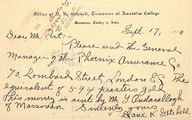 Office of D. K. Getchell, Treasurer of Anatolia College
Marsovan, Turkey in Asia.
Sept 17,
Dear Mr Peet:
Please send the General
Manager of the Phoenix Assurance Co
70, Lombard Street, London E.C. The
equivalent of 594 piasters gold
This money is sent by Mr
of Marsovan Sincerely yours
Dana K. Getchell